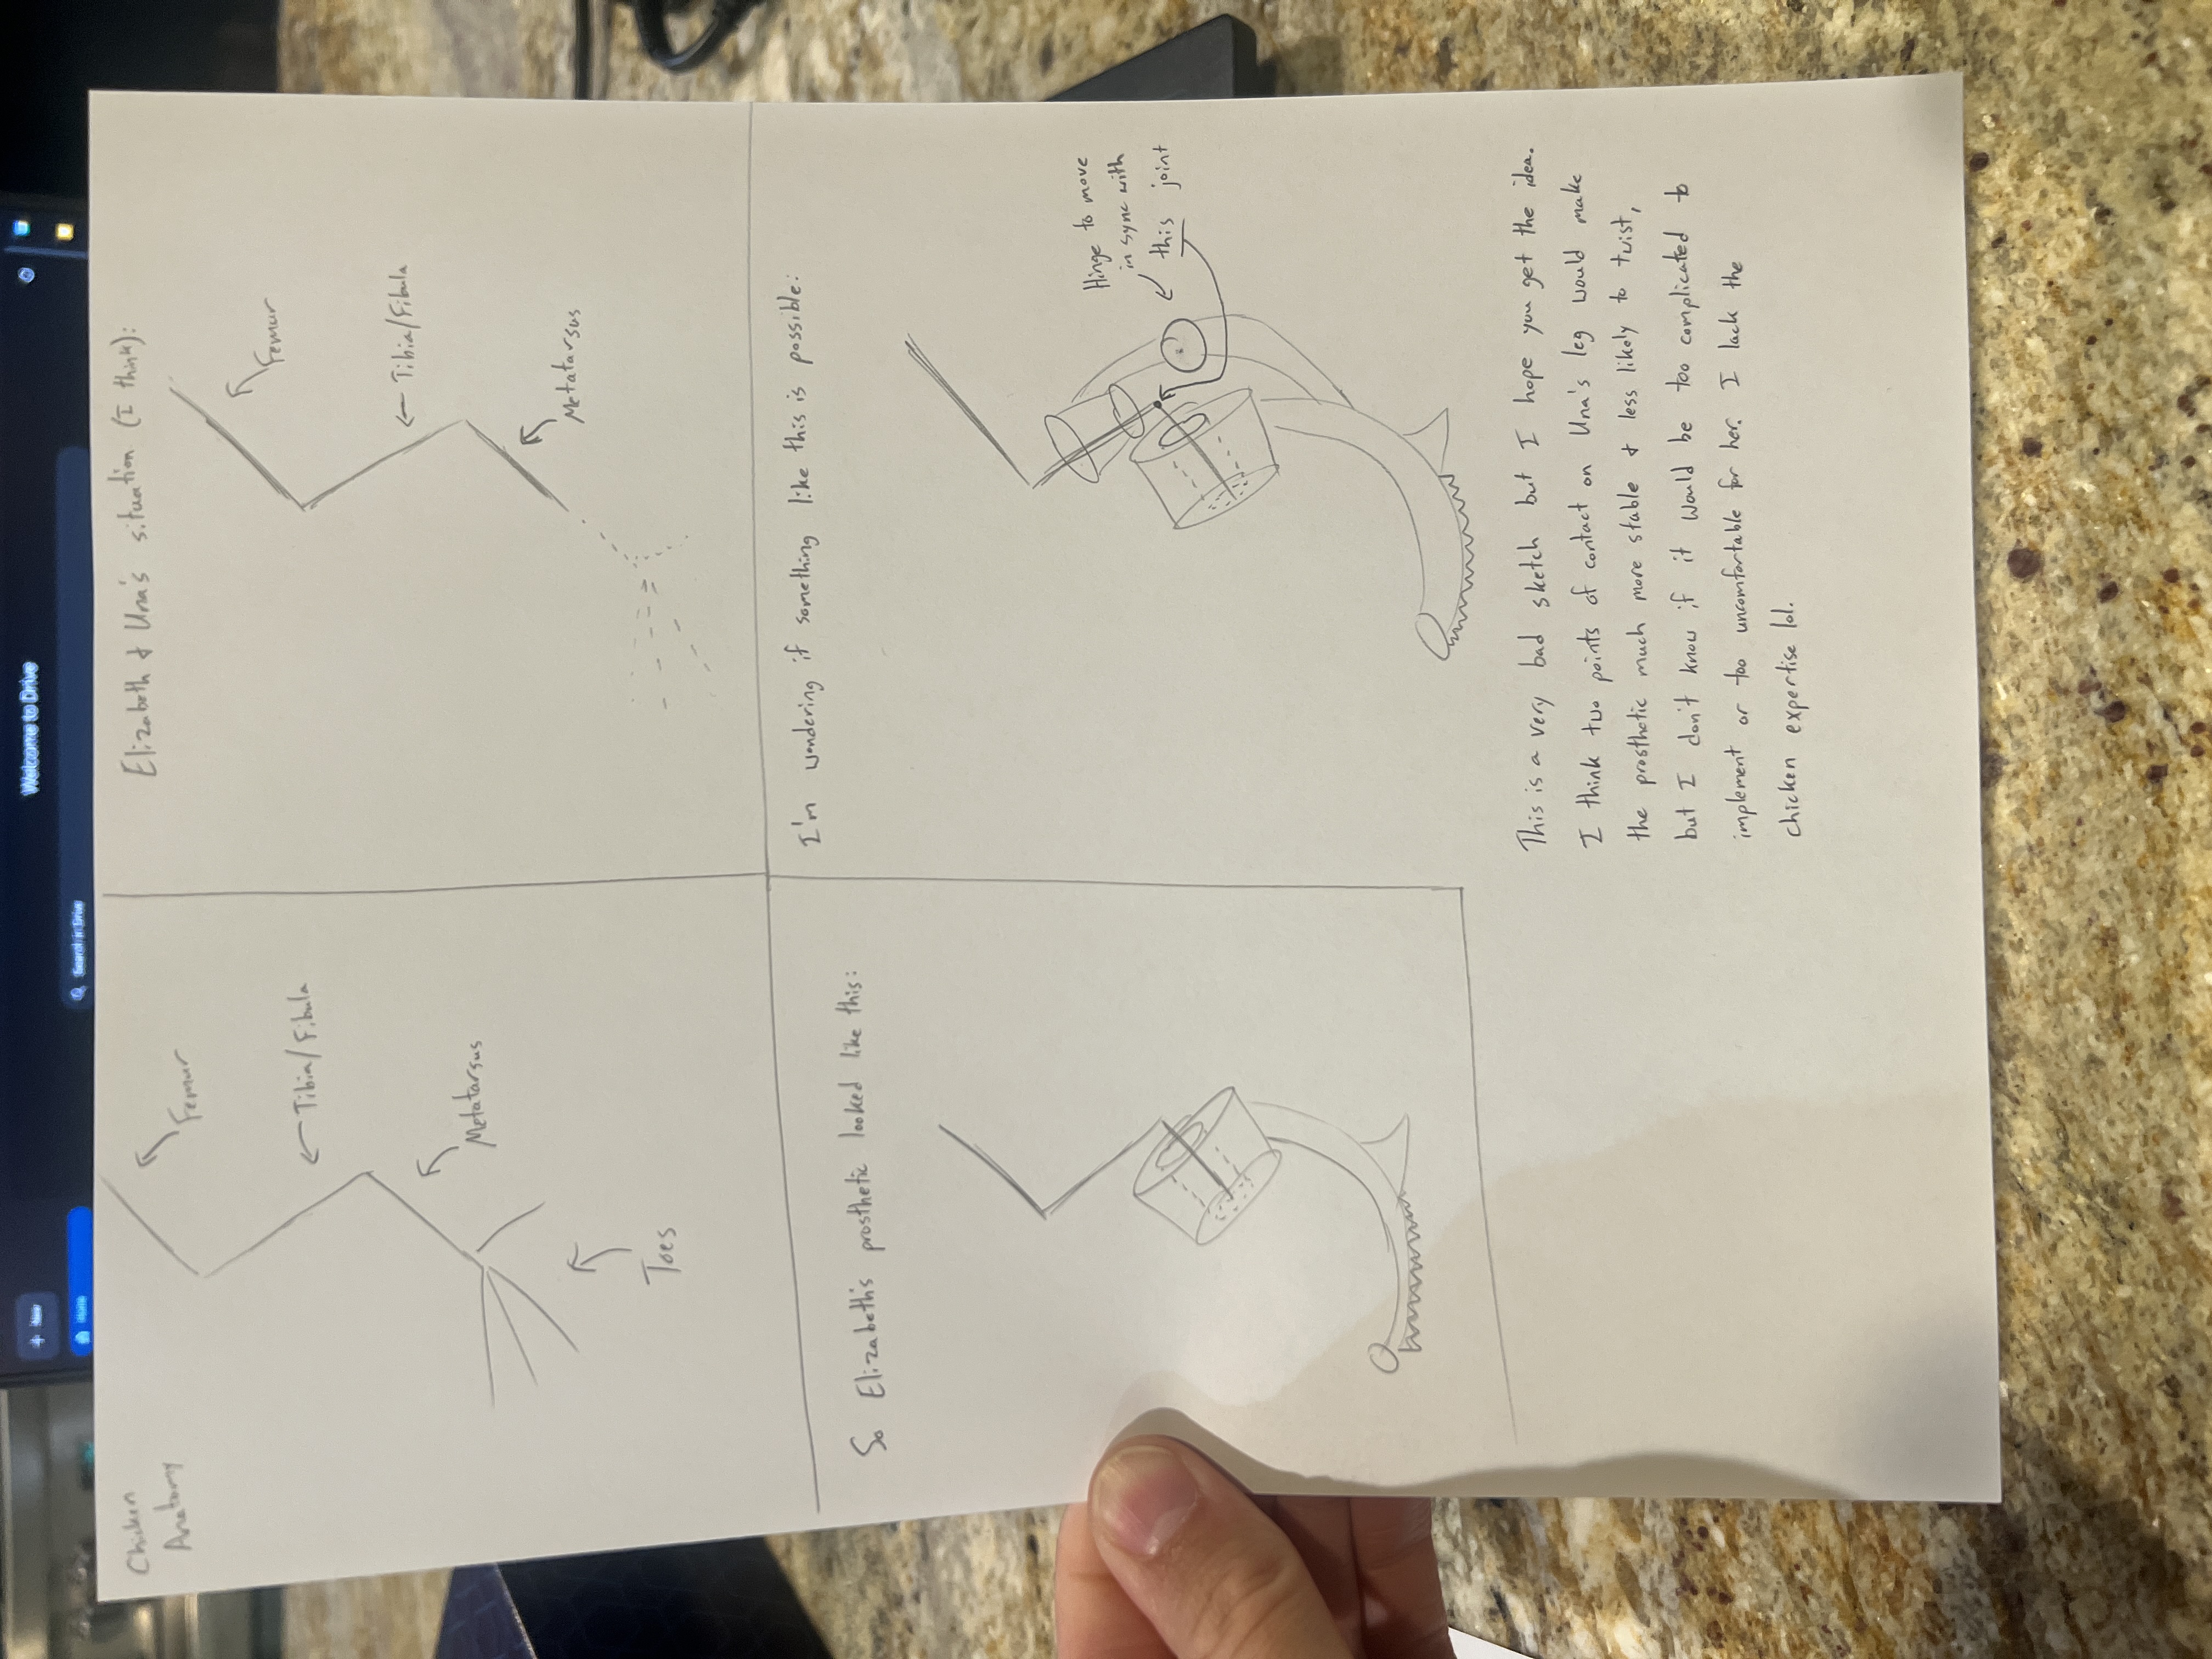 + New
Welcome to Drive
Home
Search in Drive
Chicken
Anatomy
Femur
Tibia/Fibula
Metatarsus
Toes
Elizabeth & Una's situation (I think):
Femur
Tibia/Fibula
Metatarsus
So Elizabeth's prosthetic looked like this:
I'm wondering if something like this is possible:
Hinge to move
in sync with
this joint
This is a very bad sketch but I hope you get the idea.
I think two points of contact on Una's leg would make
the prosthetic much more stable & less likely to twist,
but I don't know if it would be too complicated to
implement or too uncomfortable for her. I lack the
chicken expertise lol.